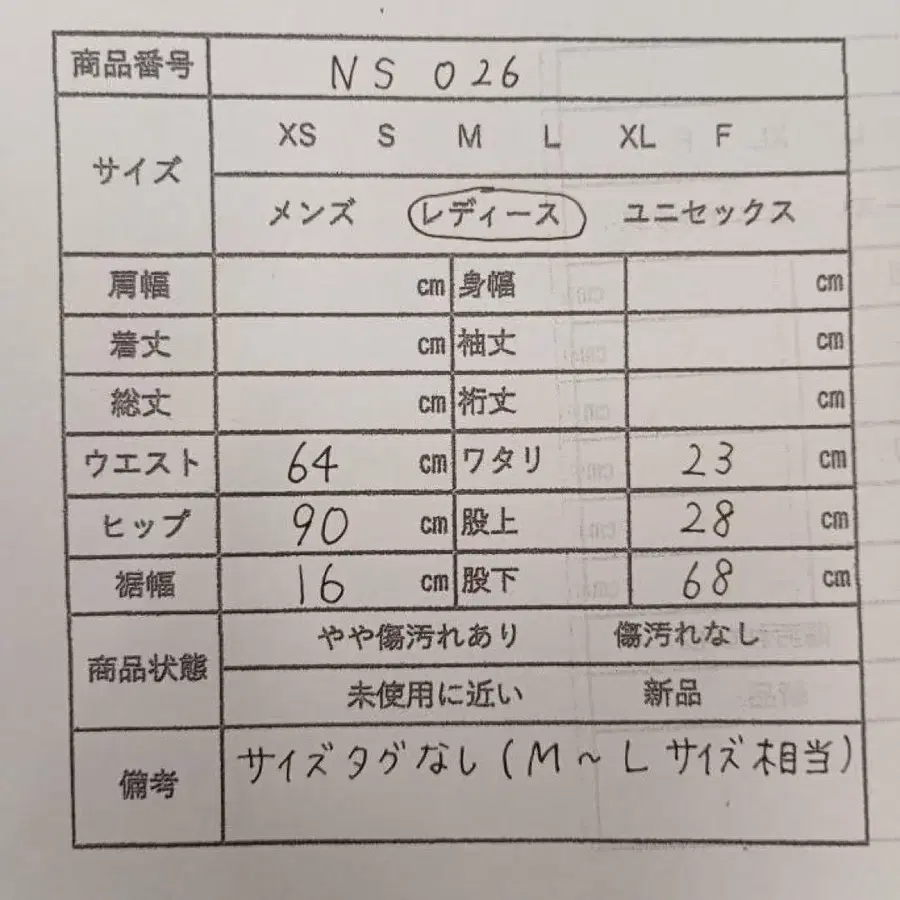 商品番号 NS 026
サイズ XS S M L XL F
メンズ レディース ユニセックス
肩幅 cm 身幅 cm
着丈 cm 袖丈 cm
総丈 cm 裄丈 cm
ウエスト 64 cm ワタリ 23 cm
ヒップ 90 cm 股上 28 cm
裾幅 16 cm 股下 68 cm
商品状態 やや傷汚れあり 傷汚れなし
未使用に近い 新品
備考 サイズタグなし(M~Lサイズ相当)